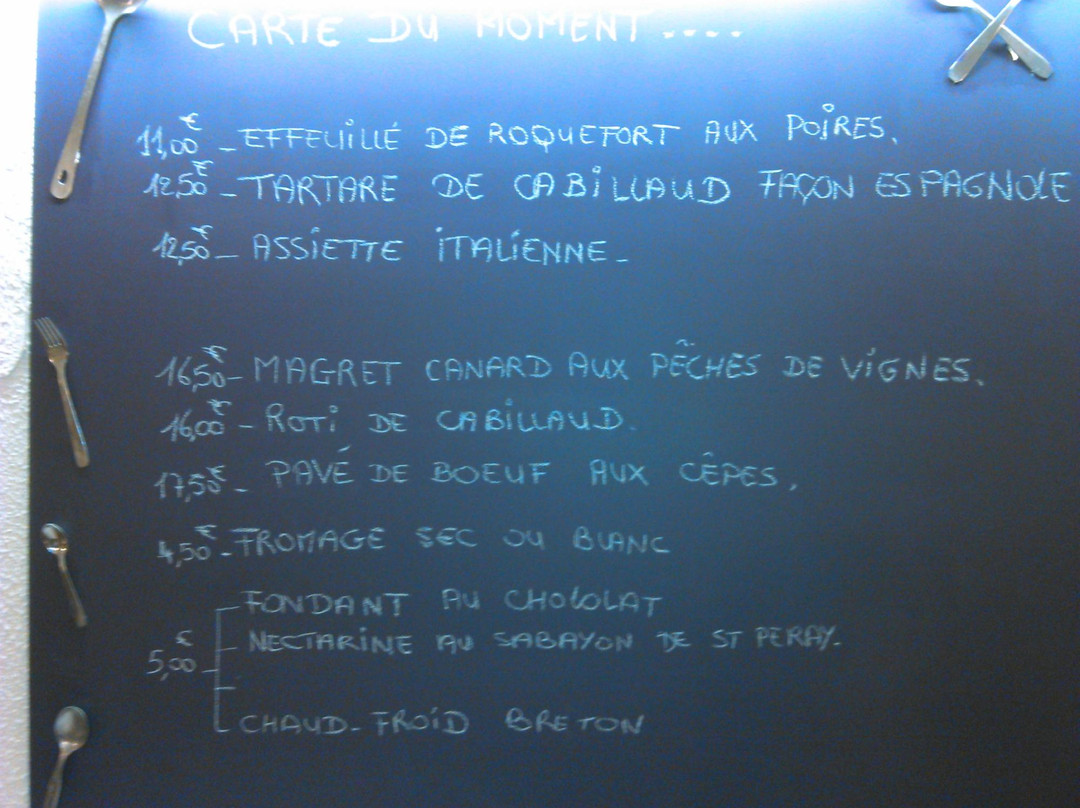 CARTE DU MOMENT....
11,00€ - EFFEUILLÉ DE ROQUEFORT AUX POIRES.
12,50€ - TARTARE DE CABILLAUD FAÇON ESPAGNOLE
12,50€ - ASSIETTE ITALIENNE -
16,50€ - MAGRET CANARD AUX PÊCHES DE VIGNES.
16,00€ - ROTI DE CABILLAUD.
17,50€ - PAVÉ DE BOEUF AUX CÊPES.
4,50€ - FROMAGE SEC OU BLANC
- FONDANT AU CHOCOLAT
- NECTARINE AU SABAYON DE ST PERAY.
5,00€
CHAUD-FROID BRETON